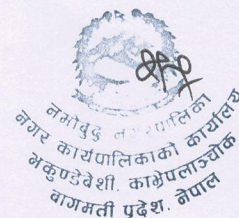 नमोबुद्ध नगरपालिका
नगर कार्यपालिकाको कार्यालय
भकुण्डेवेशी, काभ्रेपलाञ्चोक
वागमती प्रदेश, नेपाल